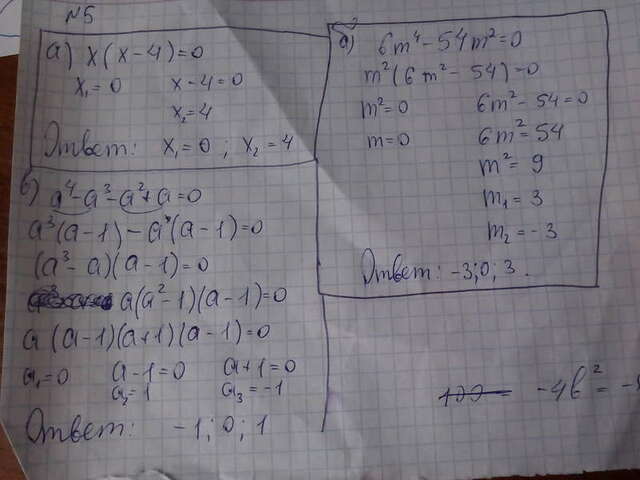 №5
а) x(x-4)=0
x₁=0 x-4=0
x₂=4
Ответ: x₁=0 ; x₂=4
в) a⁴-a³-a²+a=0
a³(a-1)-a(a-1)=0
(a³-a)(a-1)=0
a(a²-1)(a-1)=0
a(a-1)(a+1)(a-1)=0
a₁=0 a-1=0 a+1=0
a₂=1 a₃=-1
Ответ: -1; 0; 1
б) 6m⁴-54m²=0
m²(6m²-54)=0
m²=0 6m²-54=0
m=0 6m²=54
m²=9
m₁=3
m₂=-3
Ответ: -3; 0; 3.
100= -4b²=